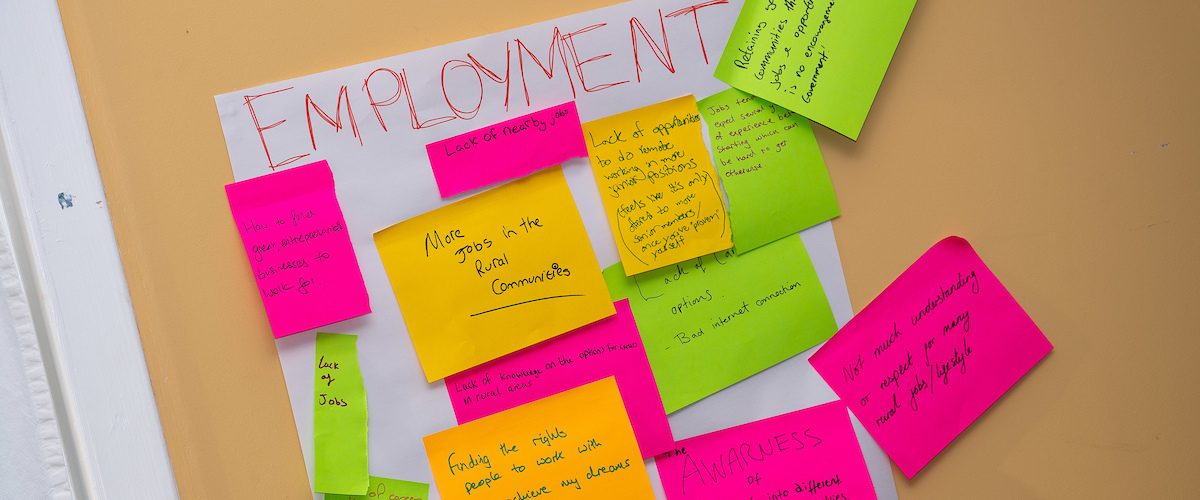 EMPLOYMENT
Retaining
communities
jobs & opport
is no encouragement
Government!
Lack of nearby jobs
Lack of opportunities
to do remote
working in more
junior positions
(feels like it's only
offered to more
senior members/
once you've proven
yourself)
Jobs tend
expect several
of experience be
starting which can
be hard to get
otherwise.
How to find
great, entrepreneurial
businesses to
work for.
More
Jobs in the
Rural
Communities
Lack of
options.
- Bad internet connection
Lack
of
Jobs
Lack of knowledge on the options for
in rural areas
Not much understanding
or respect for many
rural jobs/lifestyle
Finding the rights
people to work with
achieve my dreams
The
AWARNESS
of
into different
of career